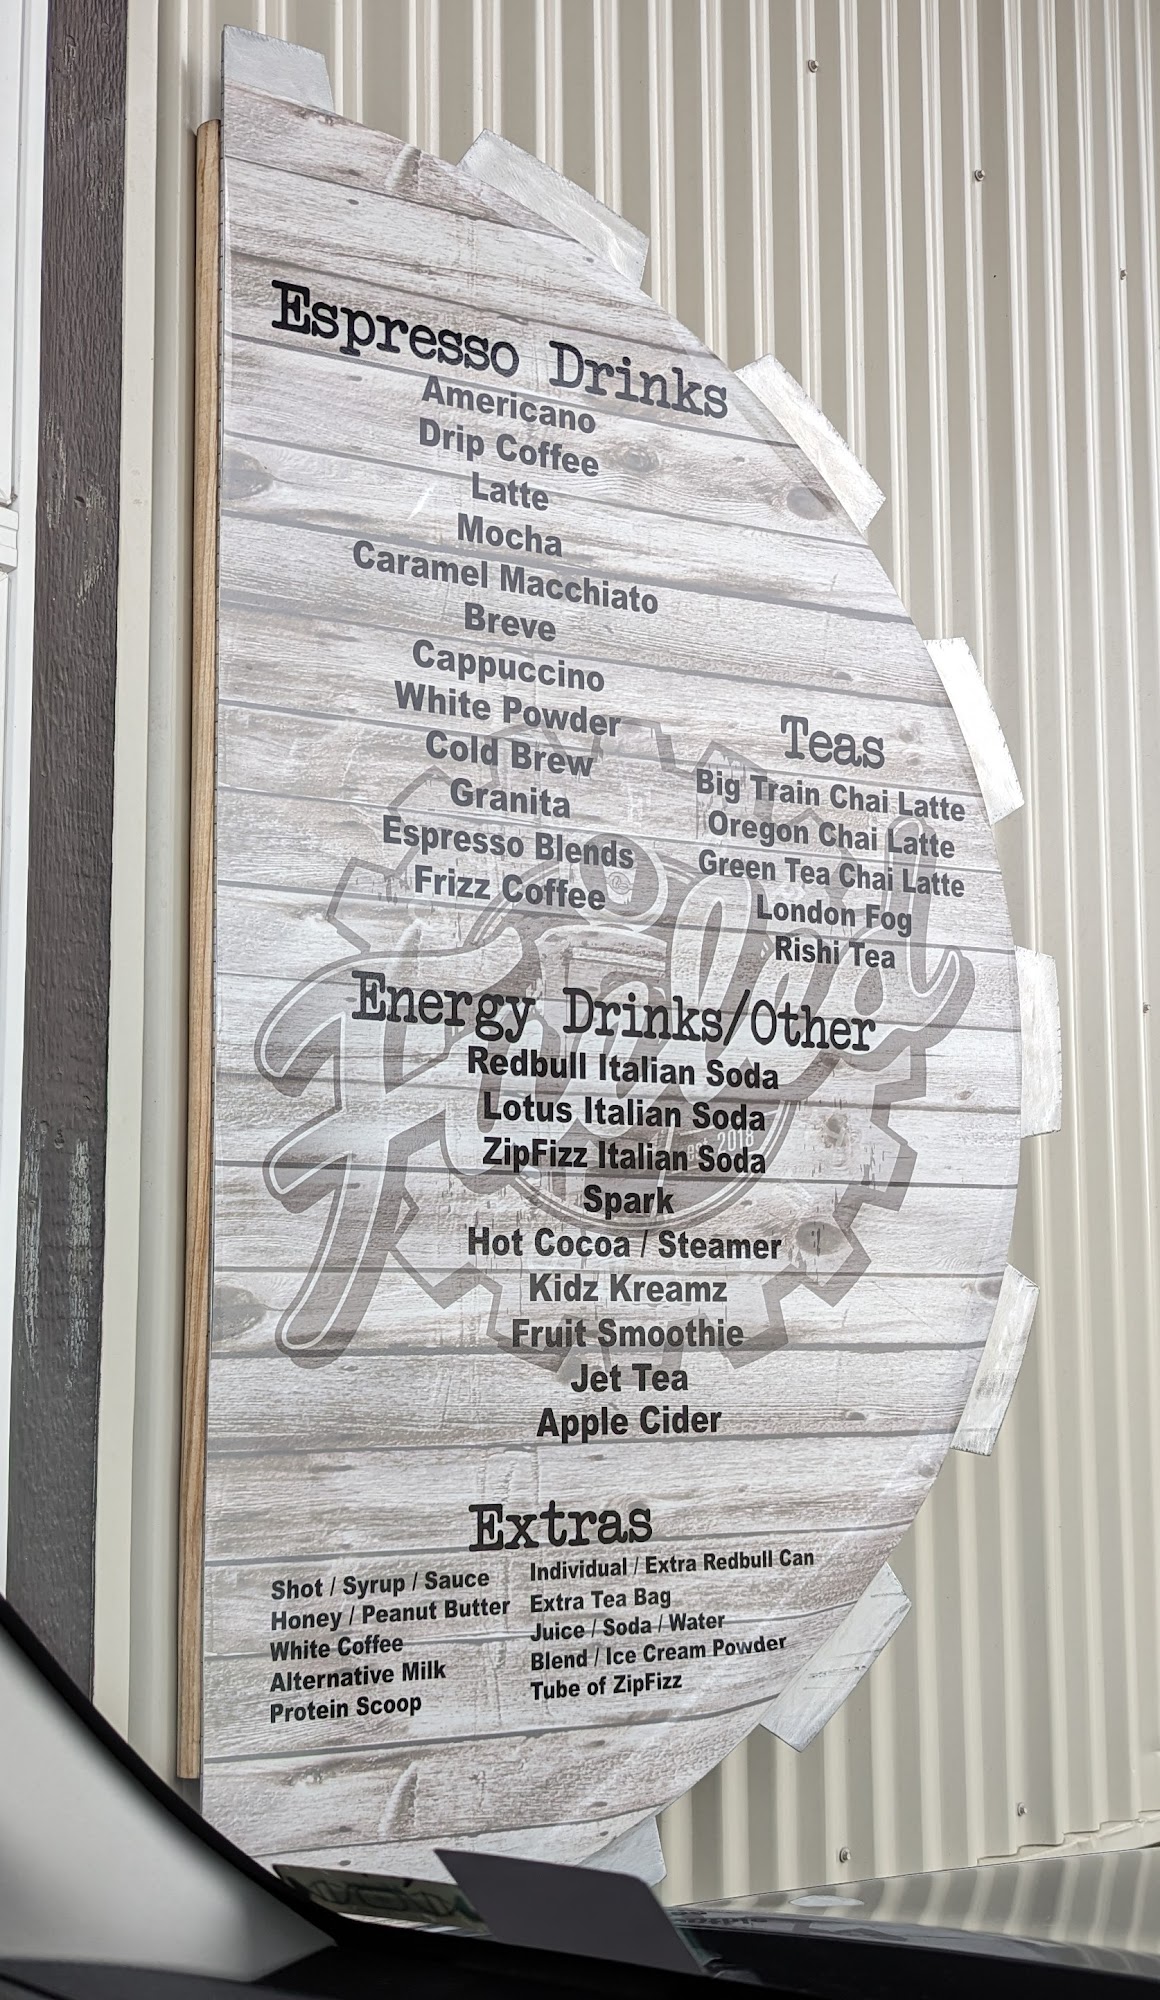 Espresso Drinks
Americano
Drip Coffee
Latte
Mocha
Caramel Macchiato
Breve
Cappuccino
White Powder
Cold Brew
Granita
Espresso Blends
Frizz Coffee
Teas
Big Train Chai Latte
Oregon Chai Latte
Green Tea Chai Latte
London Fog
Rishi Tea
Energy Drinks/Other
Redbull Italian Soda
Lotus Italian Soda
ZipFizz Italian Soda
Spark
Hot Cocoa / Steamer
Kidz Kreamz
Fruit Smoothie
Jet Tea
Apple Cider
2018
Extras
Shot / Syrup / Sauce
Honey / Peanut Butter
White Coffee
Alternative Milk
Protein Scoop
Individual / Extra Redbull Can
Extra Tea Bag
Juice / Soda / Water
Blend / Ice Cream Powder
Tube of ZipFizz